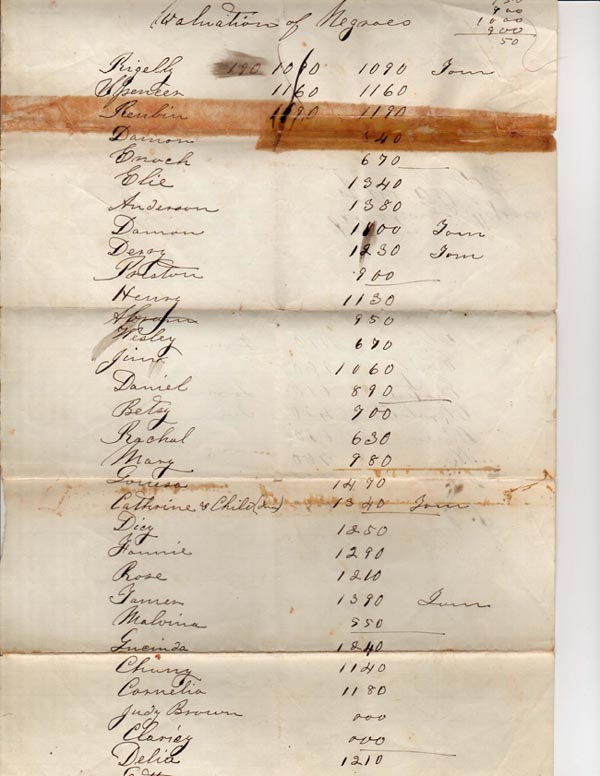 Valuation of Negroes
900
1000
900
50
Rigelly 190 1090 1090 Tom
Spencer 1160 1160
Reubin 1190 1190
Damon 840
Enoch 670
Elie 1340
Anderson 1380
Damon 1100 Tom
Derry 1230 Tom
Preston 900
Henry 1130
Abram 950
Wesley 670
Jim 1060
Daniel 890
Betsy 700
Rachal 630
Mary 980
Louisa 1490
Cathrine & Child 1340 Tom
Dicy 1250
Fannie 1290
Rose 1210
James 1390 Tom
Malvina 550
Lucinda 1240
Chuny 1140
Cornelia 1180
Judy Brown 000
Claricy 000
Delia 1210